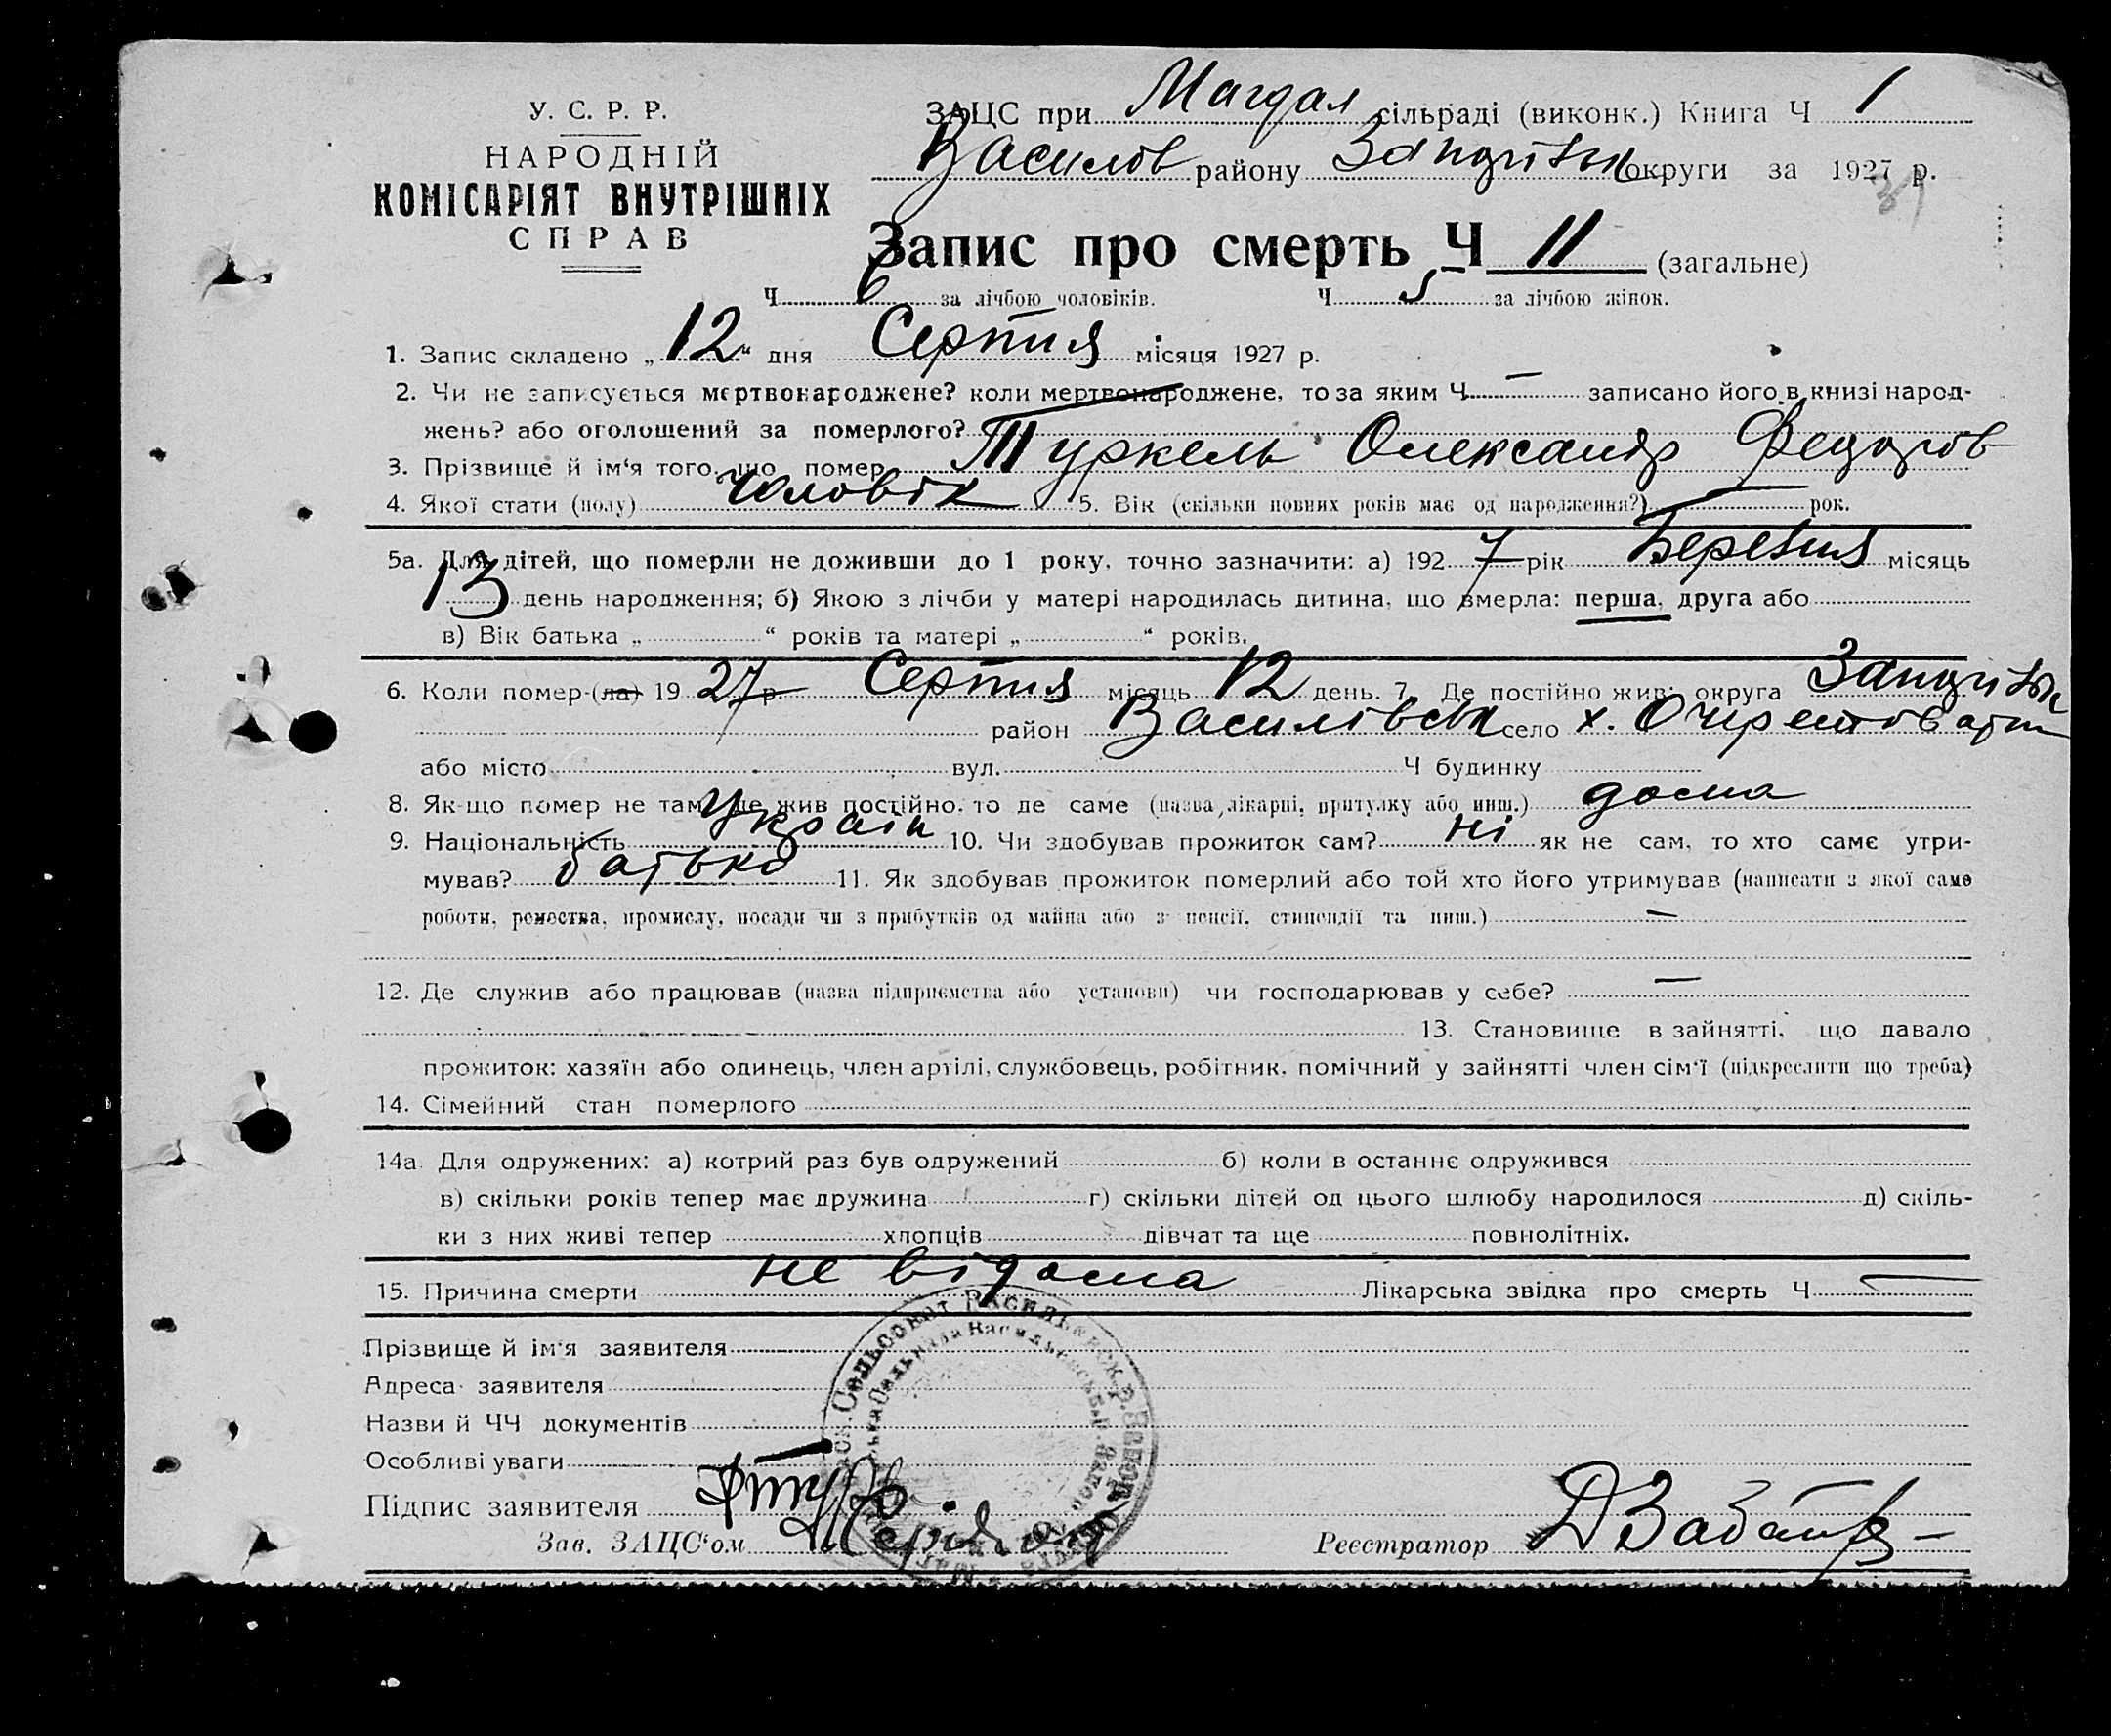 У. С. Р. Р.
НАРОДНІЙ
КОМІСАРІЯТ ВНУТРІШНІХ
СПРАВ
ЗАЦС при Магдал сільраді (виконк.) Книга Ч 1
Василів району Запоріжськ округи за 1927 р.
31
Запис про смерть Ч 11 (загальне)
Ч 6 за лічбою чоловіків. Ч 5 за лічбою жінок.
1. Запис складено „12“ дня Серпня місяця 1927 р.
2. Чи не записується мертвонароджене? коли мертвонароджене, то за яким Ч — записано його в книзі народ-
жень? або оголошений за померлого?
3. Прізвище й ім‘я того, що помер Туркель Олександр Федоров
4. Якої стати (полу) чоловік 5. Вік (скільки повних років має од народження?) — рок.
5а. Для дітей, що померли не доживши до 1 року, точно зазначити: а) 1927 рік Березня місяць
13 день народження; б) Якою з лічби у матері народилась дитина, що вмерла: перша, друга або
в) Вік батька „ “ років та матері „ “ років.
6. Коли помер-(ла) 1927 р. Серпня місяць 12 день. 7. Де постійно жив: округа Запоріжськ
район Василівськ село х.
або місто вул. Ч будинку
8. Як-що помер не там, де жив постійно, то де саме (назва лікарні, притулку або инш.) дома
9. Національність Україн 10. Чи здобував прожиток сам? ні як не сам, то хто самє утри-
мував? батько 11. Як здобував прожиток померлий або той хто його утримував (написати з якої саме
роботи, ремества, промислу, посади чи з прибутків од майна або з пенсії, стипендії та инш.) —
12. Де служив або працював (назва підприємства або установи) чи господарював у себе? —
13. Становище в зайнятті, що давало
прожиток: хазяїн або одинець, член артілі, службовець, робітник, помічний у зайнятті член сім‘ї (підкреслити що треба)
14. Сімейний стан померлого
14а. Для одружених: а) котрий раз був одружений б) коли в останнє одружився
в) скільки років тепер має дружина г) скільки дітей од цього шлюбу народилося д) скіль-
ки з них живі тепер хлопців дівчат та ще повнолітніх.
15. Причина смерти не відома Лікарська звідка про смерть Ч —
Прізвище й ім‘я заявителя
Адреса заявителя
Назви й ЧЧ документів
Особливі уваги
Підпис заявителя
Зав. ЗАЦС‘ом
Реєстратор